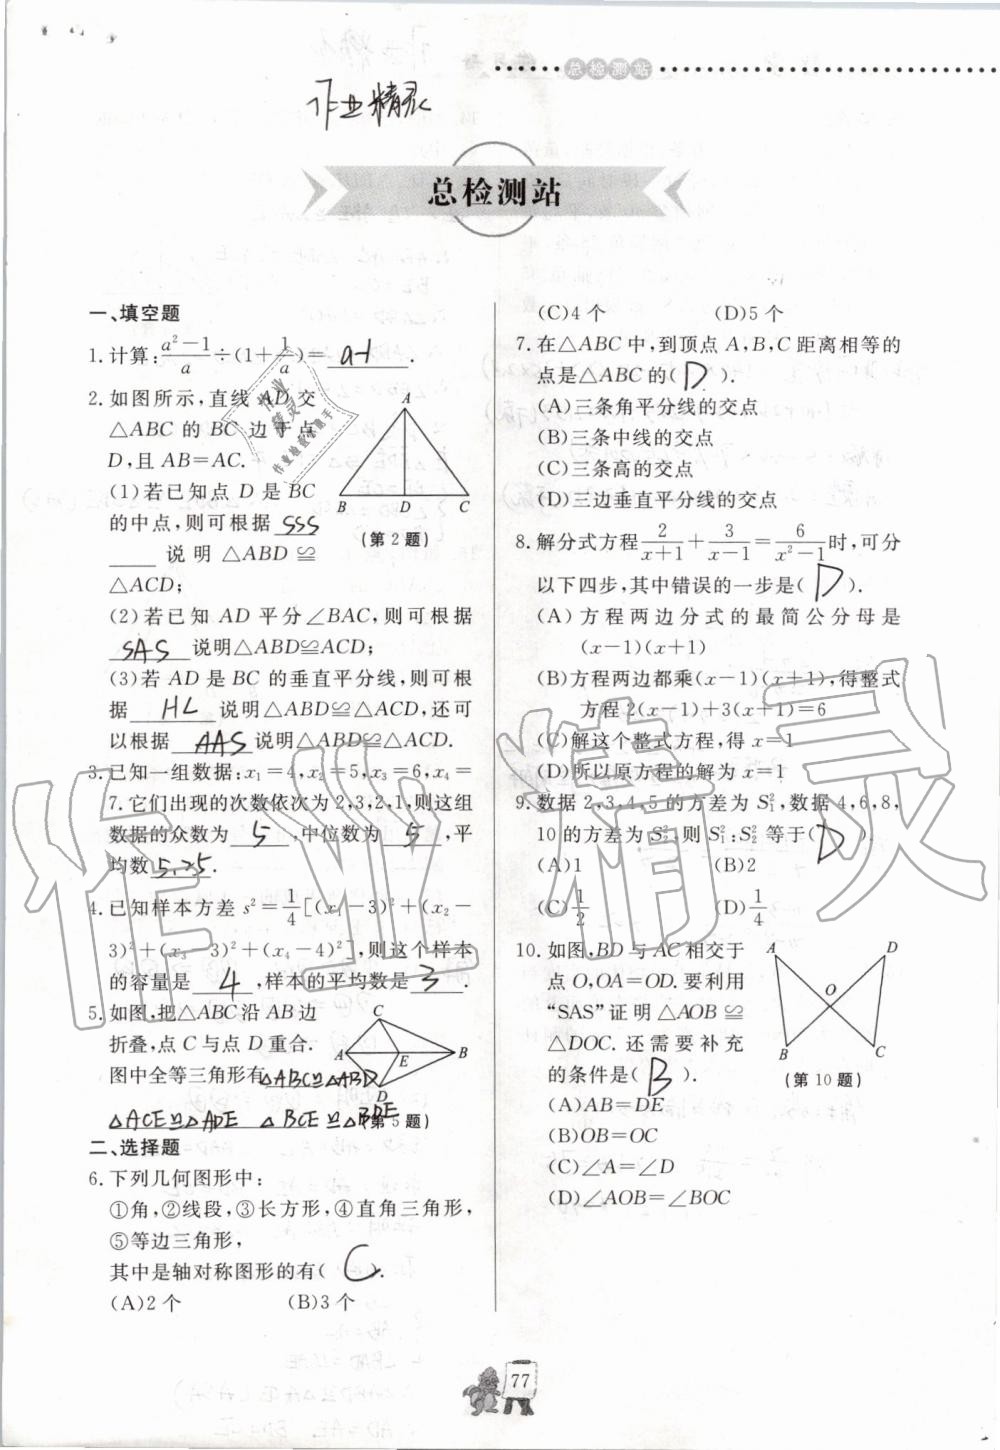 总检测站
作业精灵
总检测站
一、填空题
1. 计算:(a²-1)/a÷(1+1/a)= a-1 .
2. 如图所示,直线 AD 交
△ABC 的 BC 边于点
D,且 AB=AC.
(1)若已知点 D 是 BC
的中点,则可根据 SSS
说明 △ABD ≌
△ACD;
A
B D C
(第 2 题)
(2)若已知 AD 平分∠BAC,则可根据
SAS 说明△ABD≌△ACD;
(3)若 AD 是 BC 的垂直平分线,则可根
据 HL 说明△ABD≌△ACD,还可
以根据 AAS 说明△ABD≌△ACD.
3. 已知一组数据:x₁=4,x₂=5,x₃=6,x₄=
7.它们出现的次数依次为 2,3,2,1,则这组
数据的众数为 5 ,中位数为 5 ,平
均数 5.25 .
4. 已知样本方差 s²=1/4[(x₁-3)²+(x₂-
3)²+(x₃-3)²+(x₄-4)²],则这个样本
的容量是 4 ,样本的平均数是 3 .
5. 如图,把△ABC 沿 AB 边
折叠,点 C 与点 D 重合.
图中全等三角形有 △ABC≌△ABD
△ACE≌△ADE △BCE≌△BDE
C
A E B
D
(第 5 题)
二、选择题
6. 下列几何图形中:
①角,②线段,③长方形,④直角三角形,
⑤等边三角形,
其中是轴对称图形的有( C ).
(A)2 个 (B)3 个
(C)4 个 (D)5 个
7. 在△ABC 中,到顶点 A,B,C 距离相等的
点是△ABC 的( D ).
(A)三条角平分线的交点
(B)三条中线的交点
(C)三条高的交点
(D)三边垂直平分线的交点
8. 解分式方程2/(x+1)+3/(x-1)=6/(x²-1)时,可分
以下四步,其中错误的一步是( D ).
(A)方程两边分式的最简公分母是
(x-1)(x+1)
(B)方程两边都乘(x-1)(x+1),得整式
方程 2(x-1)+3(x+1)=6
(C)解这个整式方程,得 x=1
(D)所以原方程的解为 x=1
9. 数据 2,3,4,5 的方差为 S₁²,数据 4,6,8,
10 的方差为 S₂²,则 S₁²:S₂² 等于( D ).
(A)1 (B)2
(C)1/2 (D)1/4
10. 如图,BD 与 AC 相交于
点 O,OA=OD.要利用
“SAS”证明 △AOB ≌
△DOC. 还需要补充
的条件是( B ).
A D
O
B C
(第 10 题)
(A)AB=DE
(B)OB=OC
(C)∠A=∠D
(D)∠AOB=∠BOC
作业精灵
作业精灵
77